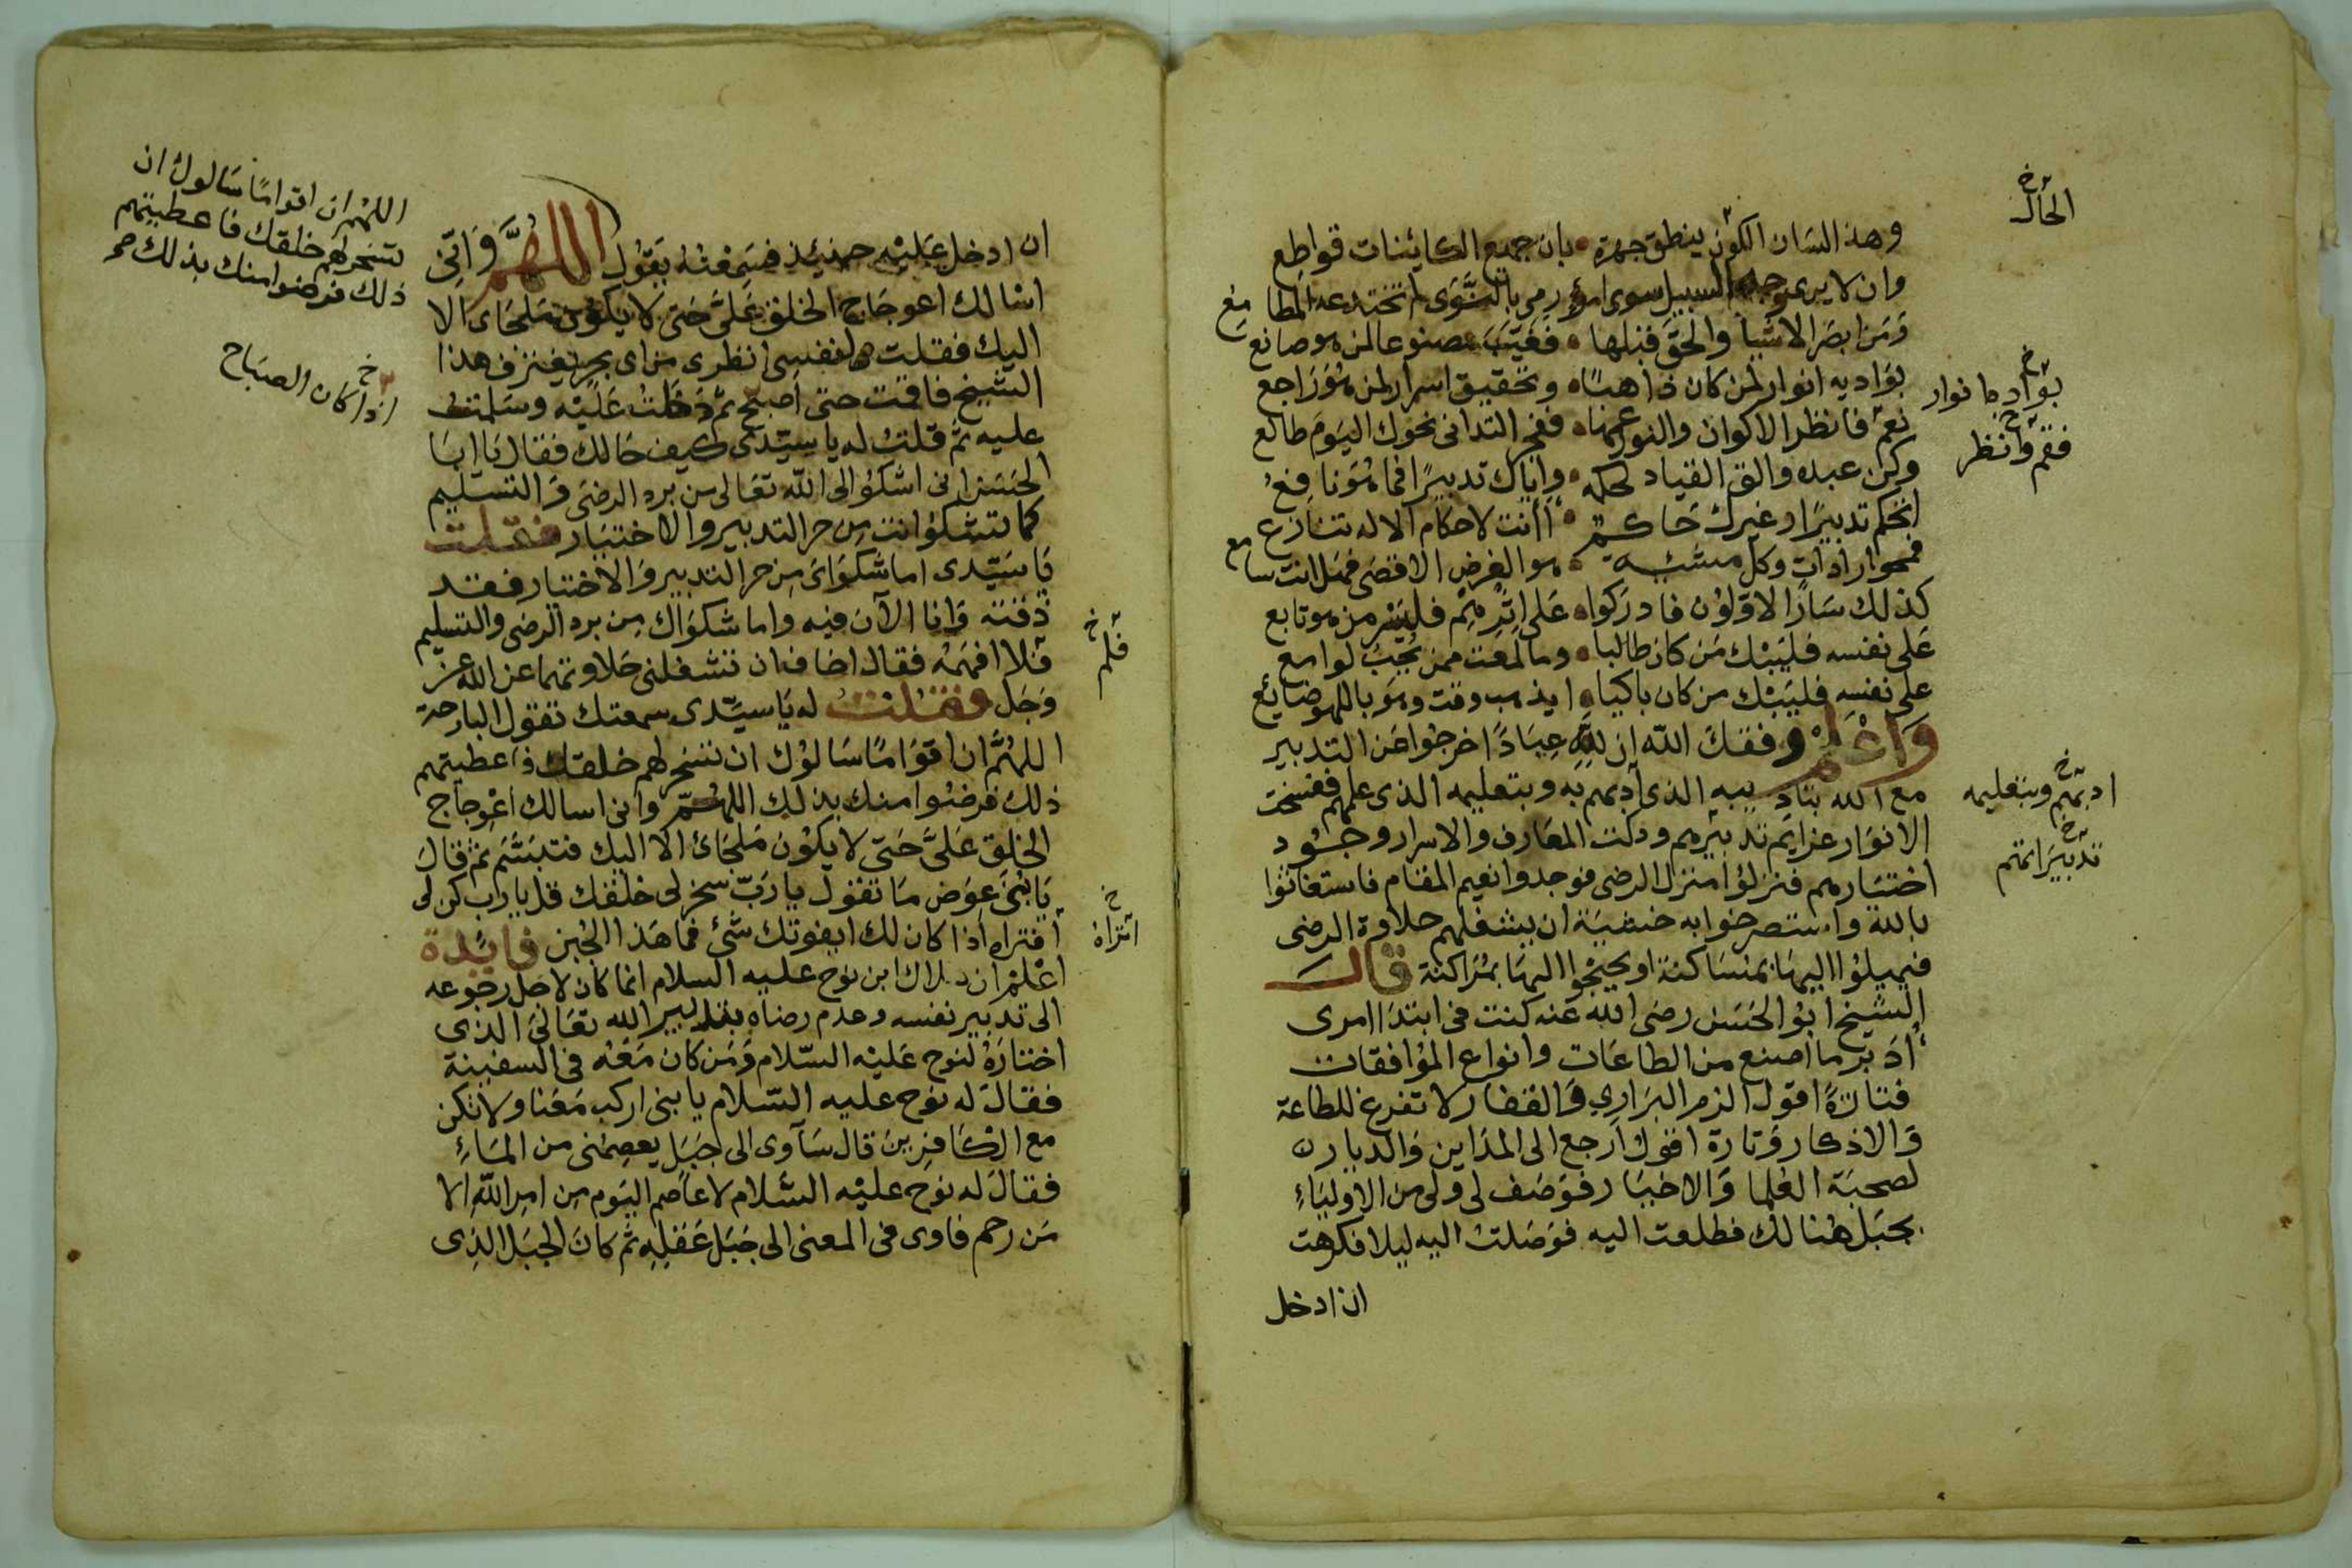 وهذا لسان الكون ينطق جهرة بان جميع الكائنات قواطع
وان لا يرى وجه السبيل سوى امرئ رمى بالسوى لم تختدعه المطامع
ومن ابصر الاشيا والحق قبلها فغيب مصنوعا لمن هو صانع
بواديه انوار لمن كان ذاهبا وتحقيق اسرار لمن هو راجع
نعم فانظر الاكوان والنور عمها ففجر التداني نحوك اليوم طالع
وكن عبده والق القياد لحكمه واياك تدبيرا فما هو نافع
اتحكم تدبيرا وغيرك حاكم أأنت لاحكام الاله تنازع
فمحو ارادات وكل مشيئة هو الغرض الاقصى فهل انت سامع
كذلك سار الاولون فادركوا على اثرهم فليسر من هو تابع
على نفسه فليبك من كان طالبا وما لمعت ممن يحب لوامع
على نفسه فليبك من كان باكيا ايذهب وقت وهو باللهو ضايع
وَاعْلم وفقك الله ان لله عبادًا خرجوا عن التدبير
مع الله بتاديبه الذي ادبهم به وبتعليمه الذي علمهم ففسخت
الانوار عزايم تدبيرهم ودكت المعارف والاسرار وجود
اختيارهم فنزلوا منزل الرضى فوجدوا نعيم المقام فاستغاثوا
بالله واستصرخوا به خشية ان يشغلهم حلاوة الرضى
فيميلوا اليها بمساكنة او يجنحوا اليها بمراكنة قال
الشيخ ابو الحسن رضى الله عنه كنت في ابتدا امرى
أدبر ما اصنع من الطاعات وانواع الموافقات
فتارة اقول الزم البراري والقفار لا تفرغ للطاعة
والاذكار وتارة اقول ارجع الى المداين والديار
لصحبة العلما والاخيار فوصف لى ولى من الاولياء
بجبل هنالك فطلعت اليه فوصلت اليه ليلا فكرهت
ان ادخل
الحال خ
بواد بها نوار خ
فقم وانظر خ
ادبهم وبتعليمه خ
تدبيراتهم خ
ان ادخل عليه حينئذ فسمعته يقول اللهم وَانّى
اسالك اعوجاج الخلق علىّ حتى لا يكون ملجاى الا
اليك فقلت يا نفسى انظرى من اى بحر يغترف هذا
الشيخ فاقمت حتى اصبح ثم دخلت عليه وسلمت
عليه ثم قلت له يا سيدى كيف حالك فقال يا ابا
الحسن انى اشكو الى الله تعالى من برد الرضى والتسليم
كما تشكو انت من حر التدبير والاختيار فقلت
يا سيدى اما شكواى من حر التدبير والاختيار فقد
ذقته وانا الآن فيه واما شكواك من برد الرضى والتسليم
فلا افهمه فقال اخاف ان تشغلنى حلاوتهما عن الله عز
وجل فقلت له يا سيدى سمعتك تقول البارحة
اللهم ان اقوامًا سالوك ان تسخر لهم خلقك فاعطيتهم
ذلك فرضوا منك بذلك اللهم وانى اسالك اعوجاج
الخلق علىّ حتى لا يكون ملجائ الا اليك فتبسم ثم قال
يا بنى عوض ما تقول يا رب سخر لى خلقك قل يا رب كن لى
أفتراه اذا كان لك ايفوتك شئ فما هذا الجبن فائدة
اعلم ان هلاك ابن نوح عليه السلام انما كان لاجل رجوعه
الى تدبير نفسه وعدم رضاه بتدبير الله تعالى الذى
اختاره لنوح عليه السلام ومن كان معه في السفينة
فقال له نوح عليه السلام يا بنى اركب معنا ولا تكن
مع الكافرين قال سآوى الى جبل يعصمنى من الماءِ
فقال له نوح عليه السلام لا عاصم اليوم من امر الله الا
من رحم فاوى في المعنى الى جبل عقله ثم كان الجبل الذى
اللهم ان اقوامًا سالوك ان
تسخر لهم خلقك فاعطيتهم
ذلك فرضوا منك بذلك صح
اذا كان الصباح خ
فلم خ
اتراه خ